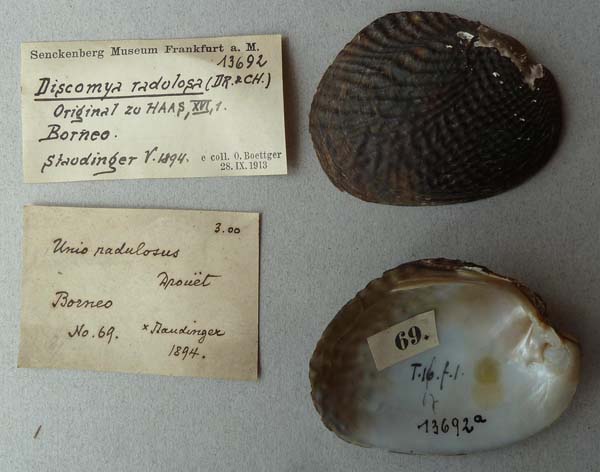 Senckenberg Museum Frankfurt a. M.
13692
Discomya radulosa (DR. & CH.)
Original zu HAAS, XVI, 1.
Borneo.
Staudinger V. 1894.
e coll. O. Boettger
28. IX. 1913
3.00
Unio radulosus
Drouët
Borneo
No. 69. × Staudinger
1894.
69.
T. 16. f. 1.
13692a